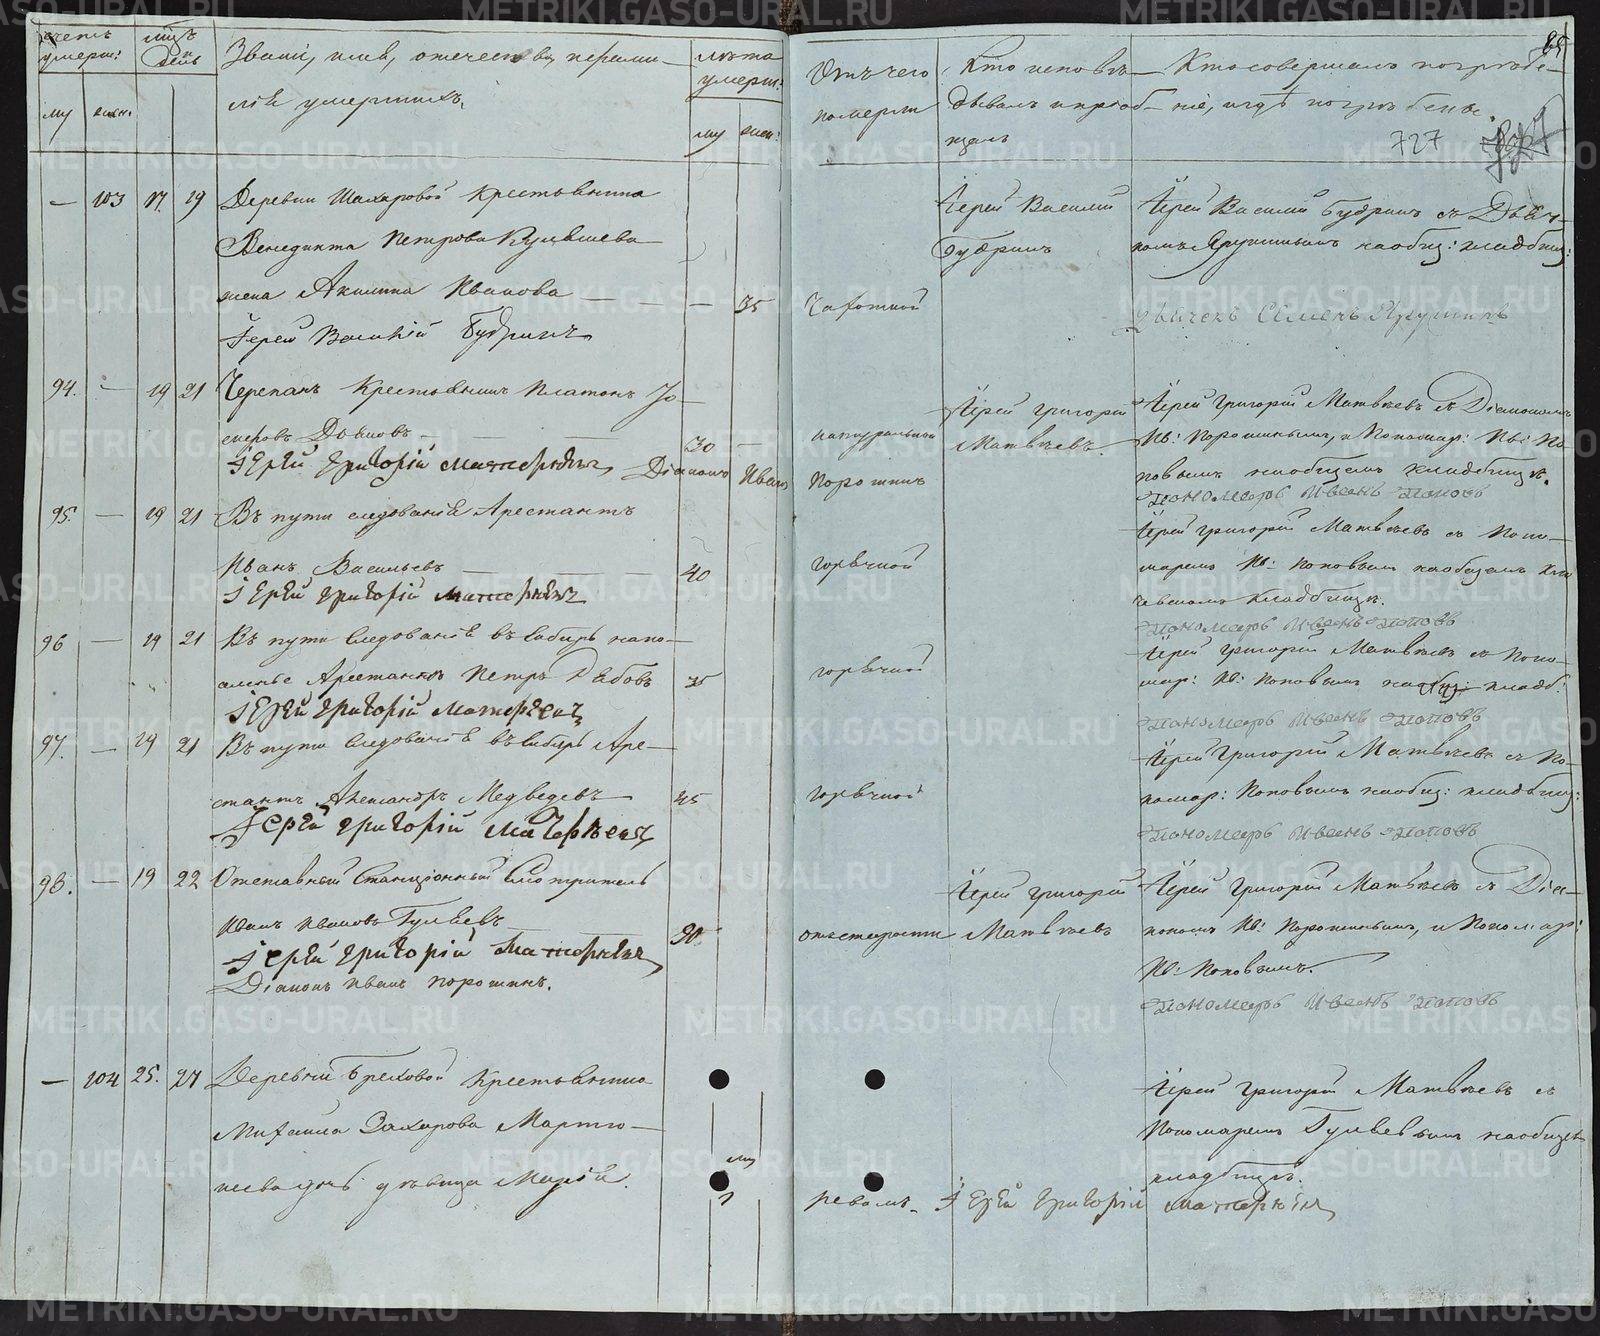 счетъ умерш:
муж
жен.
мцъ день
Званіе, имя, отечество, и фамилія умершихъ.
лѣта умерш:
муж
жен:
Отъ чего померли
Кто исповѣдывалъ и пріобщалъ
Кто совершалъ погребеніе, и гдѣ погребены.
85
727
— 103 17. 19
Деревни Шахаровой крестьянина
Венедикта Петрова
жена Акилина Иванова — — — 35
Іерей Василій Будринъ
Чахоткой
Іерей Василій
Будринъ
Іерей Василій Будринъ съ Дьячкомъ
на общ: кладбищ:
Дьячекъ Семенъ
94. — 19 21
Черепанъ Крестьянинъ Платонъ
30 —
Іерей Григорій Матвѣевъ Діаконъ Иванъ
Порошинъ
натуральной
Іерей Григорій
Матвѣевъ.
Іерей Григорій Матвѣевъ съ Діакономъ
Ив: Порошинымъ, и Пономар: Ив: По-
повымъ на общемъ кладбищѣ.
Пономарь Иванъ Поповъ
95. — 19 21
Въ пути слѣдованія Арестантъ
Иванъ Васильевъ — — — 40
Іерей Григорій Матвѣевъ
горячкой
Іерей Григорій Матвѣевъ съ Поно-
маремъ Ив: Поповымъ на общемъ
кладбищѣ.
Пономарь Иванъ Поповъ
96 — 19 21
Въ пути слѣдованія въ Сибирь на по-
селенье Арестантъ Петръ Рябовъ 35
Іерей Григорій Матвѣевъ
горячкой
Іерей Григорій Матвѣевъ съ Поно-
мар: Ив: Поповымъ на общ: кладб:
Пономарь Иванъ Поповъ
97. — 19 21
Въ пути слѣдованія въ Сибирь Аре-
стантъ Александръ Медведевъ 45
Іерей Григорій Матвѣевъ
горячкой
Іерей Григорій Матвѣевъ съ По-
номар: Поповымъ на общ: кладбищ:
Пономарь Иванъ Поповъ
98. — 19 22
Отставный Станціонный Смотритель
Иванъ Ивановъ Гуляевъ 90
Іерей Григорій Матвѣевъ
Діаконъ Иванъ Порошинъ.
отъ старости
Іерей Григорій
Матвѣевъ
Іерей Григорій Матвѣевъ съ Діа-
кономъ Ив: Порошинымъ, и Пономар:
Ив: Поповымъ.
Пономарь Иванъ Поповъ
— 104 25. 27
Деревни Бреховой Крестьянина
Михаила Захарова Мартю-
шева дочь дѣвица Марія.
ревомъ.
Іерей Григорій Матвѣевъ съ
Пономаремъ Гуляевымъ на общемъ
кладбищѣ.
Іерей Григорій Матвѣевъ
METRIKI.GASO-URAL.RU